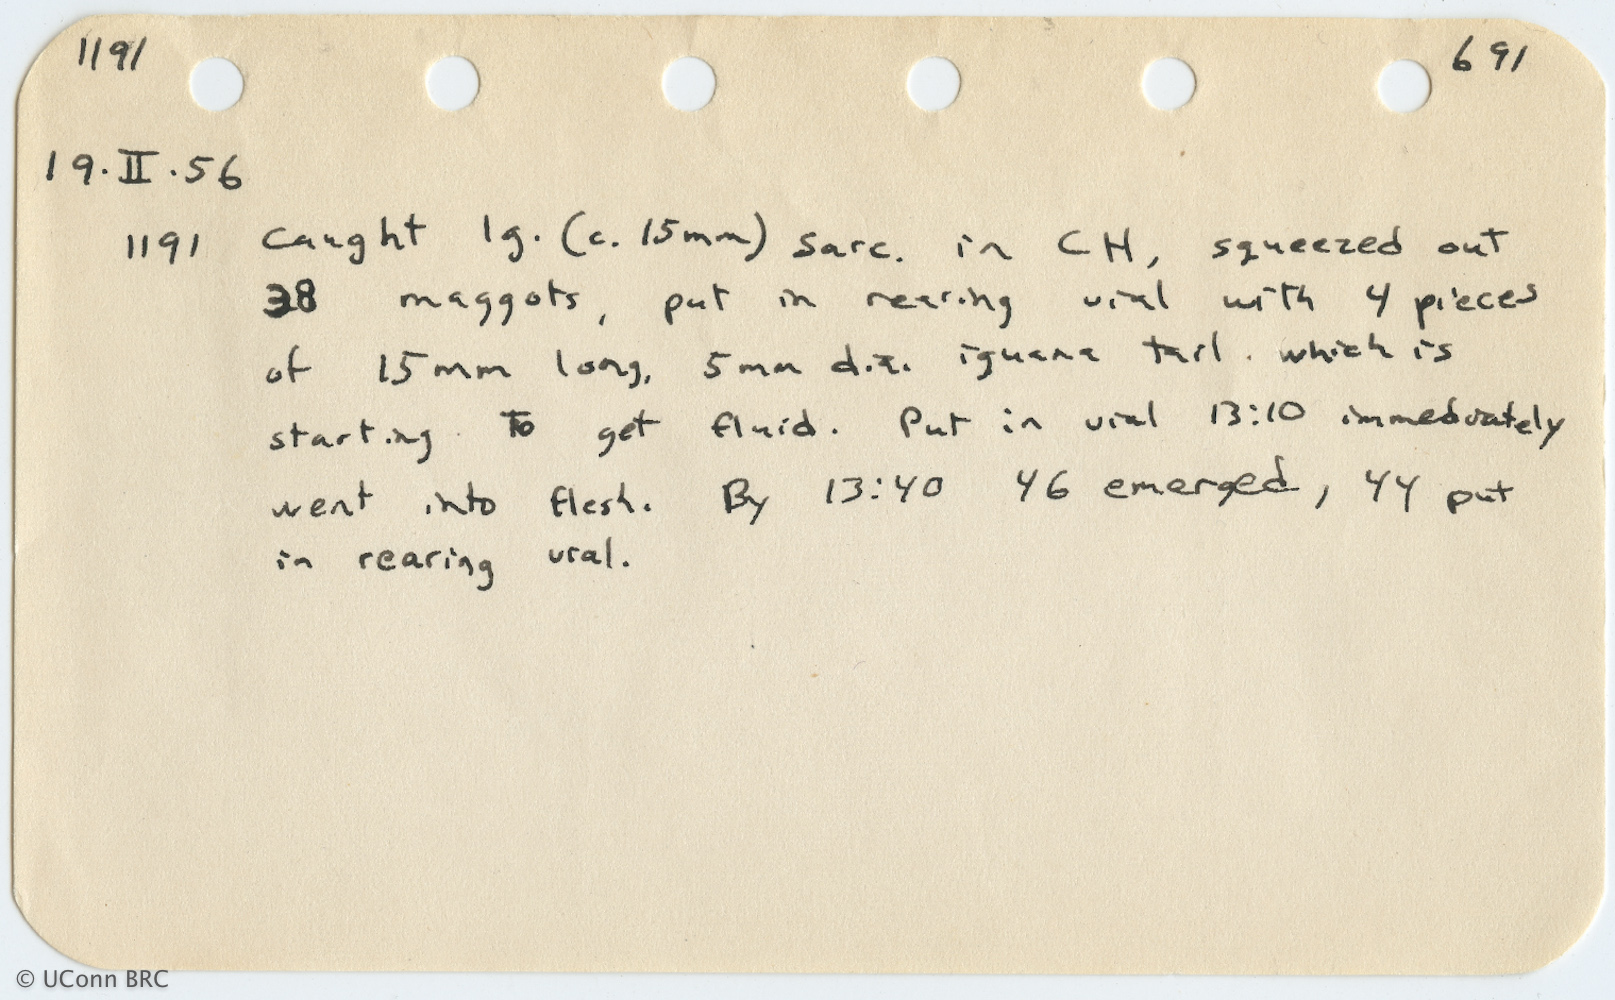 1191 691
19.II.56
1191 Caught lg. (c. 15mm) sarc. in CH, squeezed out
38 maggots, put in rearing vial with 4 pieces
of 15mm long, 5mm dia. iguana tail. which is
starting to get fluid. Put in vial 13:10 immediately
went into flesh. By 13:40 46 emerged, 44 put
in rearing vial.
© UConn BRC